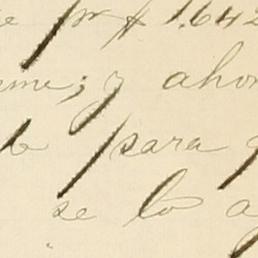 pr $ 1.642
me; y aho
para
se lo a